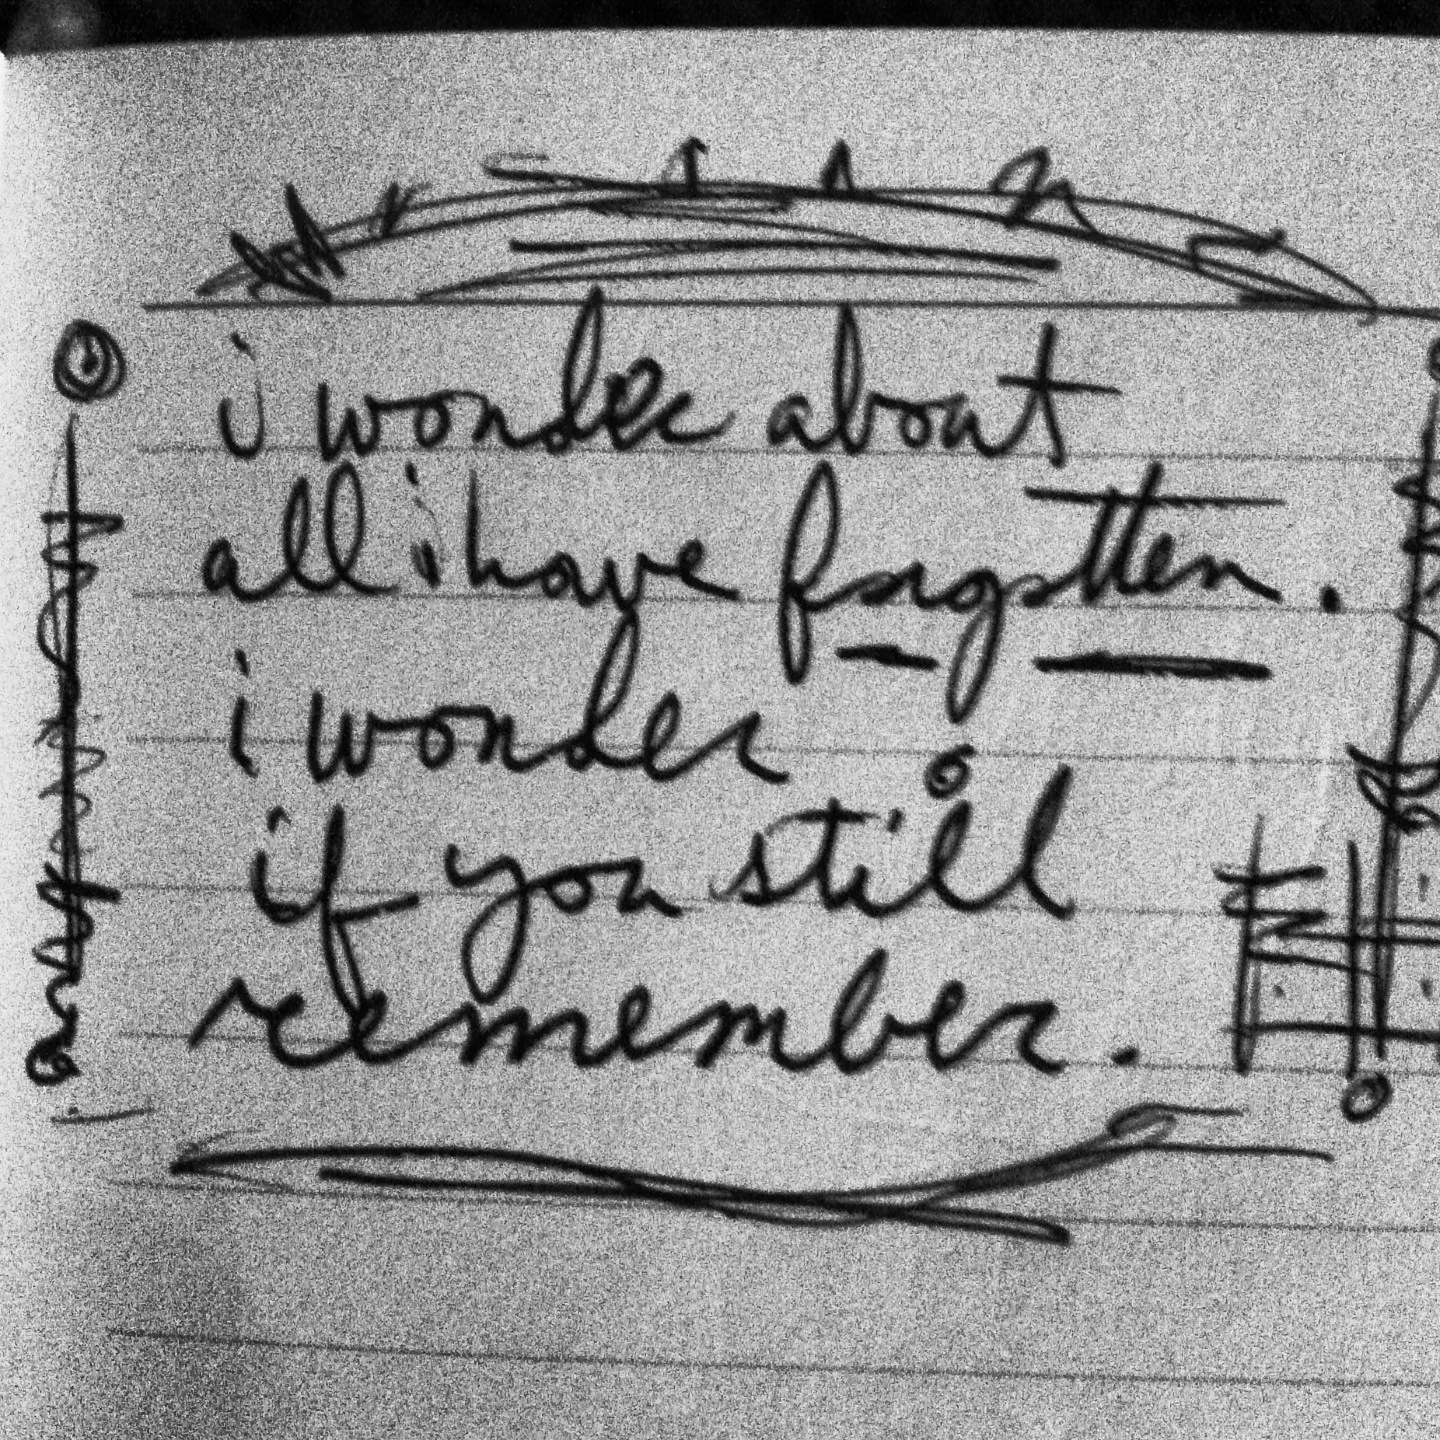 i wonder about
all i have forgotten.
i wonder
if you still
remember.